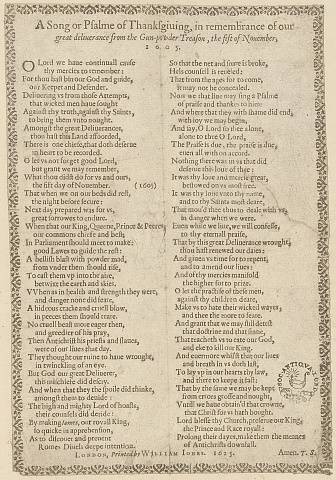 A Song or Psalme of Thanksgiving, in remembrance of our
great deliverance from the Gun-powder Treason, the fift of November,
1605.
O Lord we have continuall cause
thy mercies to remember:
For thou hast bin our God and guide,
our Keeper and Defender.
Delivering us from those Attempts,
that wicked men have sought
Against thy truth, against thy Saints,
to bring them unto nought.
Amongst the great Deliverances,
thou hast this Land afforded,
There is one chiefe, that doth deserve
in heart to be recorded.
O let us not forget good Lord,
but grant we may remember,
What thou didst do for us and ours,
the fift day of November. (1605)
That when we on our beds did rest,
the night before secure:
Next day prepared was for us,
great sorrowes to endure.
When that our King, Queene, Prince & Peeres
our commons chiefe and best,
In Parliament should meet to make
good Lawes to guide the rest:
A hellish blast with powder mad,
from under them should rise,
To cast them up into the aire,
betwixt the earth and skies.
VVhen as in health and strength they were,
and danger none did feare,
A hideous cracke and cruell blow,
in peeces them should teare.
No cruell beast more eager then,
and greedier of his pray,
Then Antichrist his priests and slaves,
were of our lives that day.
They thought our ruine to have wrought,
in twinckling of an eye.
But God our great Deliverer,
this mischiefe did descry.
And when that they the spoile did thinke,
amongst them to devide:
The high and mighty Lord of hoasts,
their counsels did deride.
By making James, our royall King,
so quicke in apprehention,
As to discover and prevent
Romes Divels deepe intention.
So that the net and snare is broke,
Hels counsell is reveled:
That from the ages for to come,
it may not be concealed.
Now we that live may sing a Psalme
of praise and thankes to him:
And where that they with shame did end,
with joy we may begin,
And say, O Lord to thee alone,
alone to thee O Lord,
The Praise is due, the praise is due;
even all with on accord.
Nothing there was in us that did
deserve this love of thine:
It was thy love and mercie great,
bestowed on us most free.
It was thy love unto thy name,
and to thy Saints most deare,
That mov'd thee thus to deale with us,
in danger when we were.
Even while we live, we will confesse,
to thy eternall praise,
That by this great Deliverance wrought,
thou hast renewed our dayes:
And given us time for to repent,
and to amend our lives:
And of thy mercies manifold
the higher for to prize.
O let the practise of their men,
against thy children deare,
Make us to hate their wicked wayes,
and thee the more to feare.
And grant that we may still detest
that doctrine and that sinne,
That teacheth us to cast our God,
and eke to kill our King.
And evermore whilst that our lives
and breath in us doth last,
To lay up in our hearts thy law,
and there to keepe it fast:
That by the same we may be kept
from errors grosse and nought,
Untill we have obtain'd that crowne,
that Christ for us hath bought.
Lord blesse thy Church, preserve our King,
the Prince and Race royall:
Prolong their dayes, make them the menes
of Antichrists downfall.
Amen. T. S.
LONDON, Printed by WILLIAM IONES. 1625.